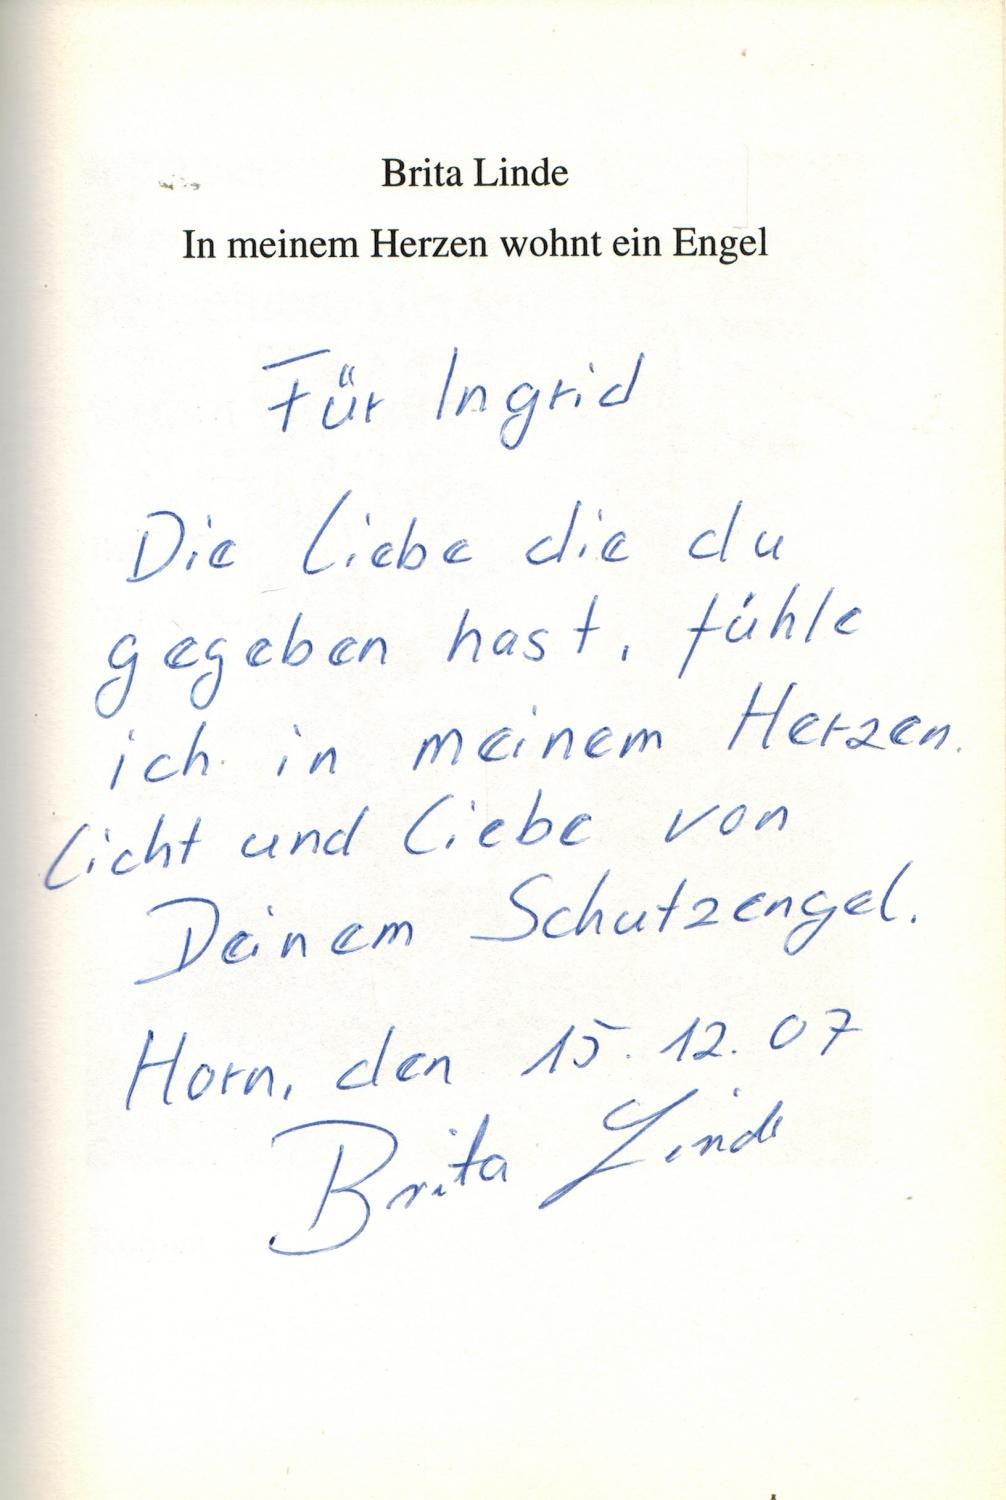 Brita Linde
In meinem Herzen wohnt ein Engel
Für Ingrid
Die Liebe die du
gegeben hast, fühle
ich in meinem Herzen.
Licht und Liebe von
Deinem Schutzengel.
Horn, den 15.12.07
Brita Linde